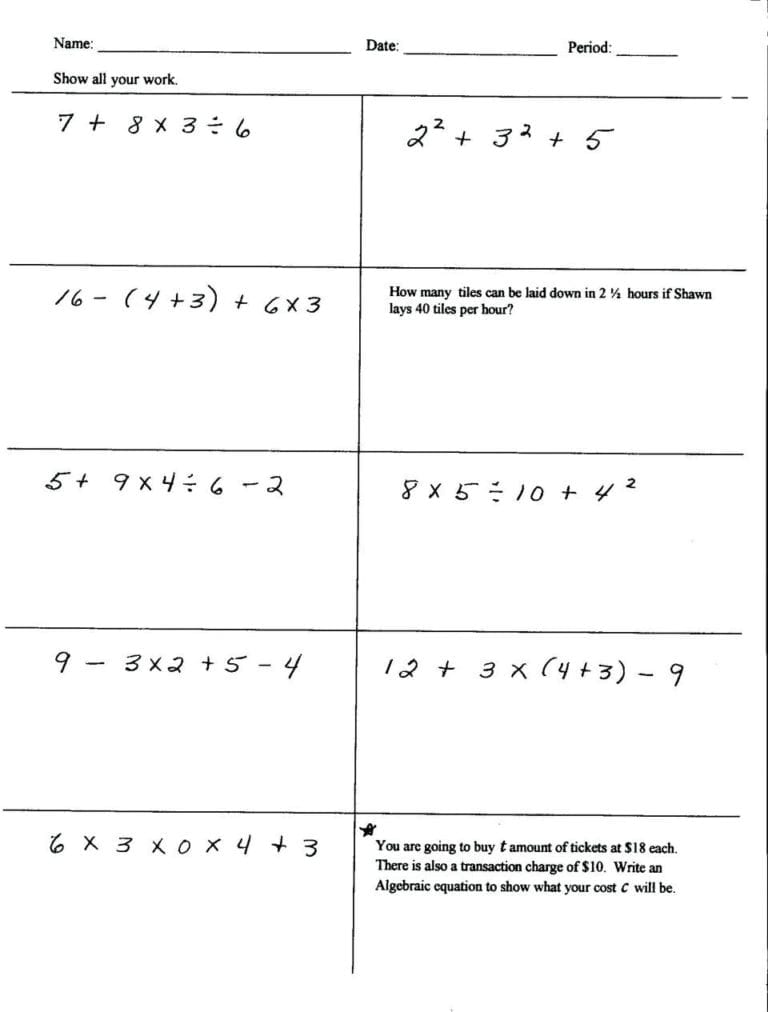 Name: ____________ Date: ____________ Period: ______
Show all your work.
7 + 8 × 3 ÷ 6
2² + 3² + 5
16 - (4 + 3) + 6 × 3
How many tiles can be laid down in 2 ½ hours if Shawn
lays 40 tiles per hour?
5 + 9 × 4 ÷ 6 - 2
8 × 5 ÷ 10 + 4²
9 - 3 × 2 + 5 - 4
12 + 3 × (4 + 3) - 9
6 × 3 × 0 × 4 + 3
You are going to buy t amount of tickets at $18 each.
There is also a transaction charge of $10. Write an
Algebraic equation to show what your cost C will be.